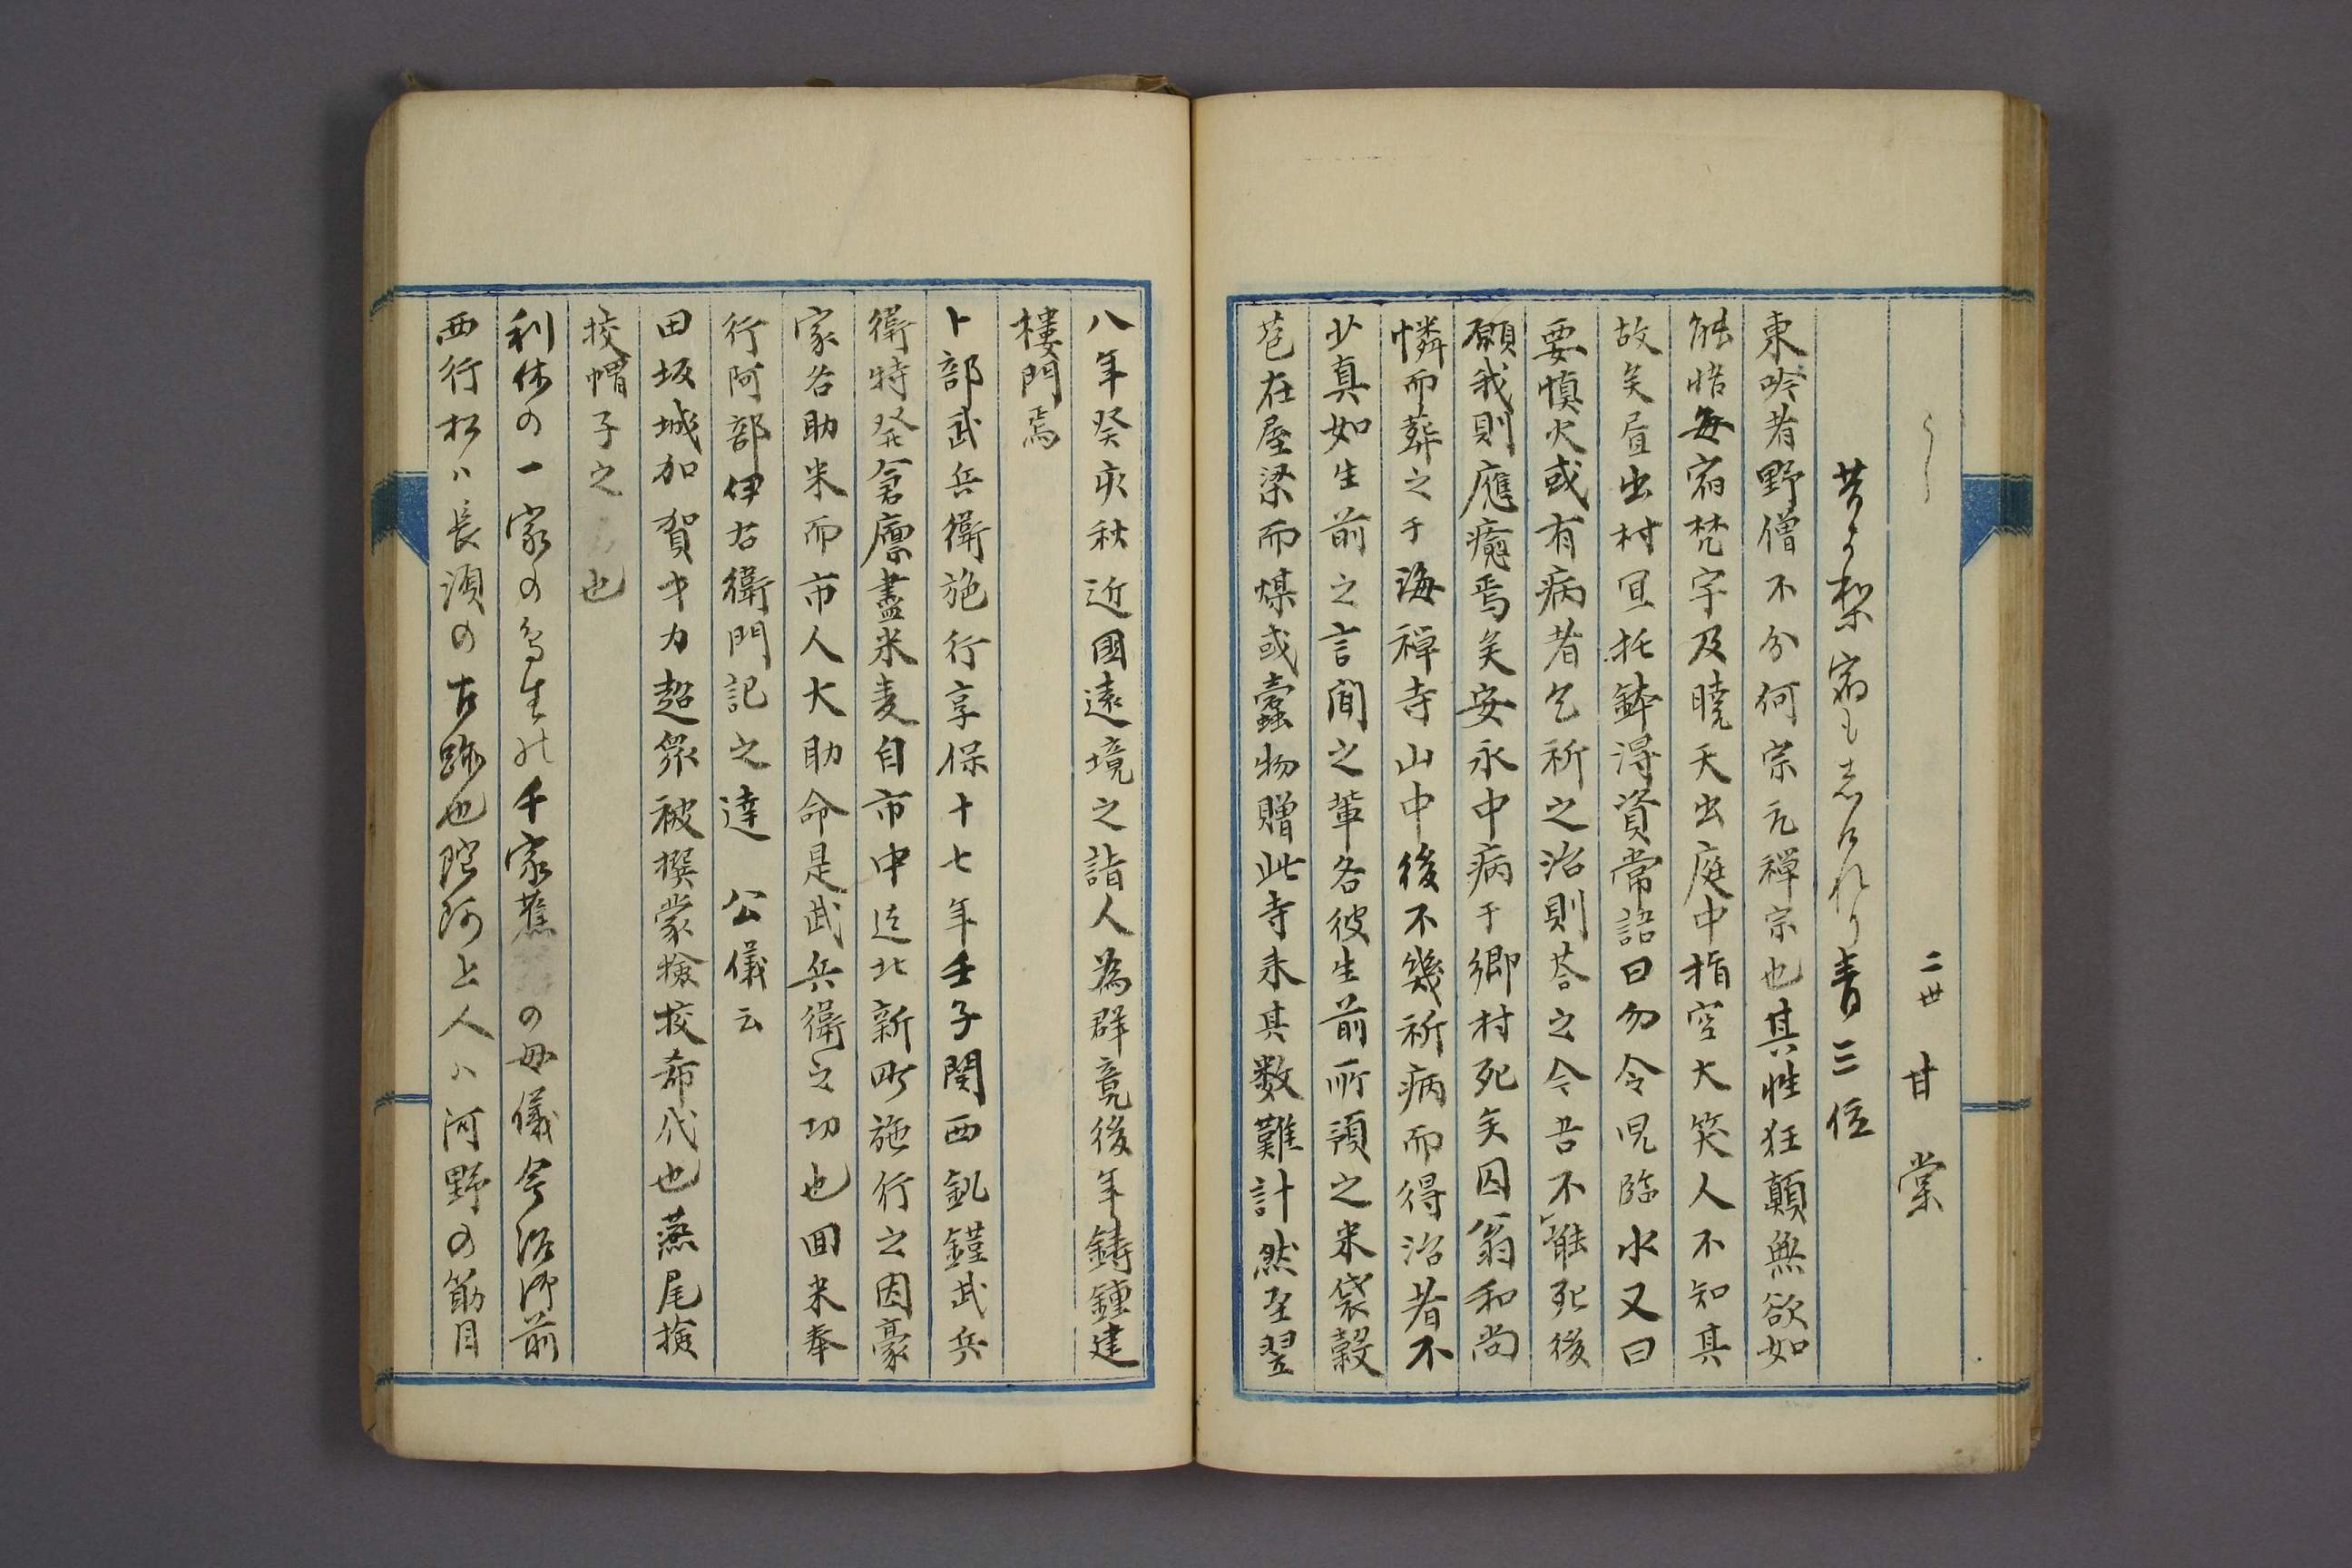 二世 甘棠
宿も 青三位
東吟者野僧不分何宗元禅宗也其性狂顛無欲如
能悟毎宿梵宇及曉天出庭中指空大笑人不知其
故矣昼出村里托鉢得資常語曰勿令児臨水又曰
要慎火或有病者乞祈之治則荅之今吾不能死後
願我則應癒焉矣安永中病于郷村死矣因翁和尚
憐而葬之于海禅寺山中後不幾祈病而得治者不
少真如生前之言聞之輩各彼生前所須之米袋穀
苞在屋梁而煤或蠹物贈此寺来其数難計然至翌
八年癸亥秋近國遠境之詣人為群竟後年鋳鍾建
楼門焉
卜部武兵衛施行享保十七年壬子関西飢饉武兵
衛特発倉廩盡米麦自市中迄北新町施行之因豪
家各助米而市人大助命是武兵衛之功也回米奉
行阿部伊右衛門記之達 公儀云
田坂城加賀才力超衆被撰蒙検校希代也燕尾検
校帽子之 也
利休の一家の 千家蕉 の毋儀今治御前
西行松ハ長須の古跡也陀阿上人ハ河野の筋目